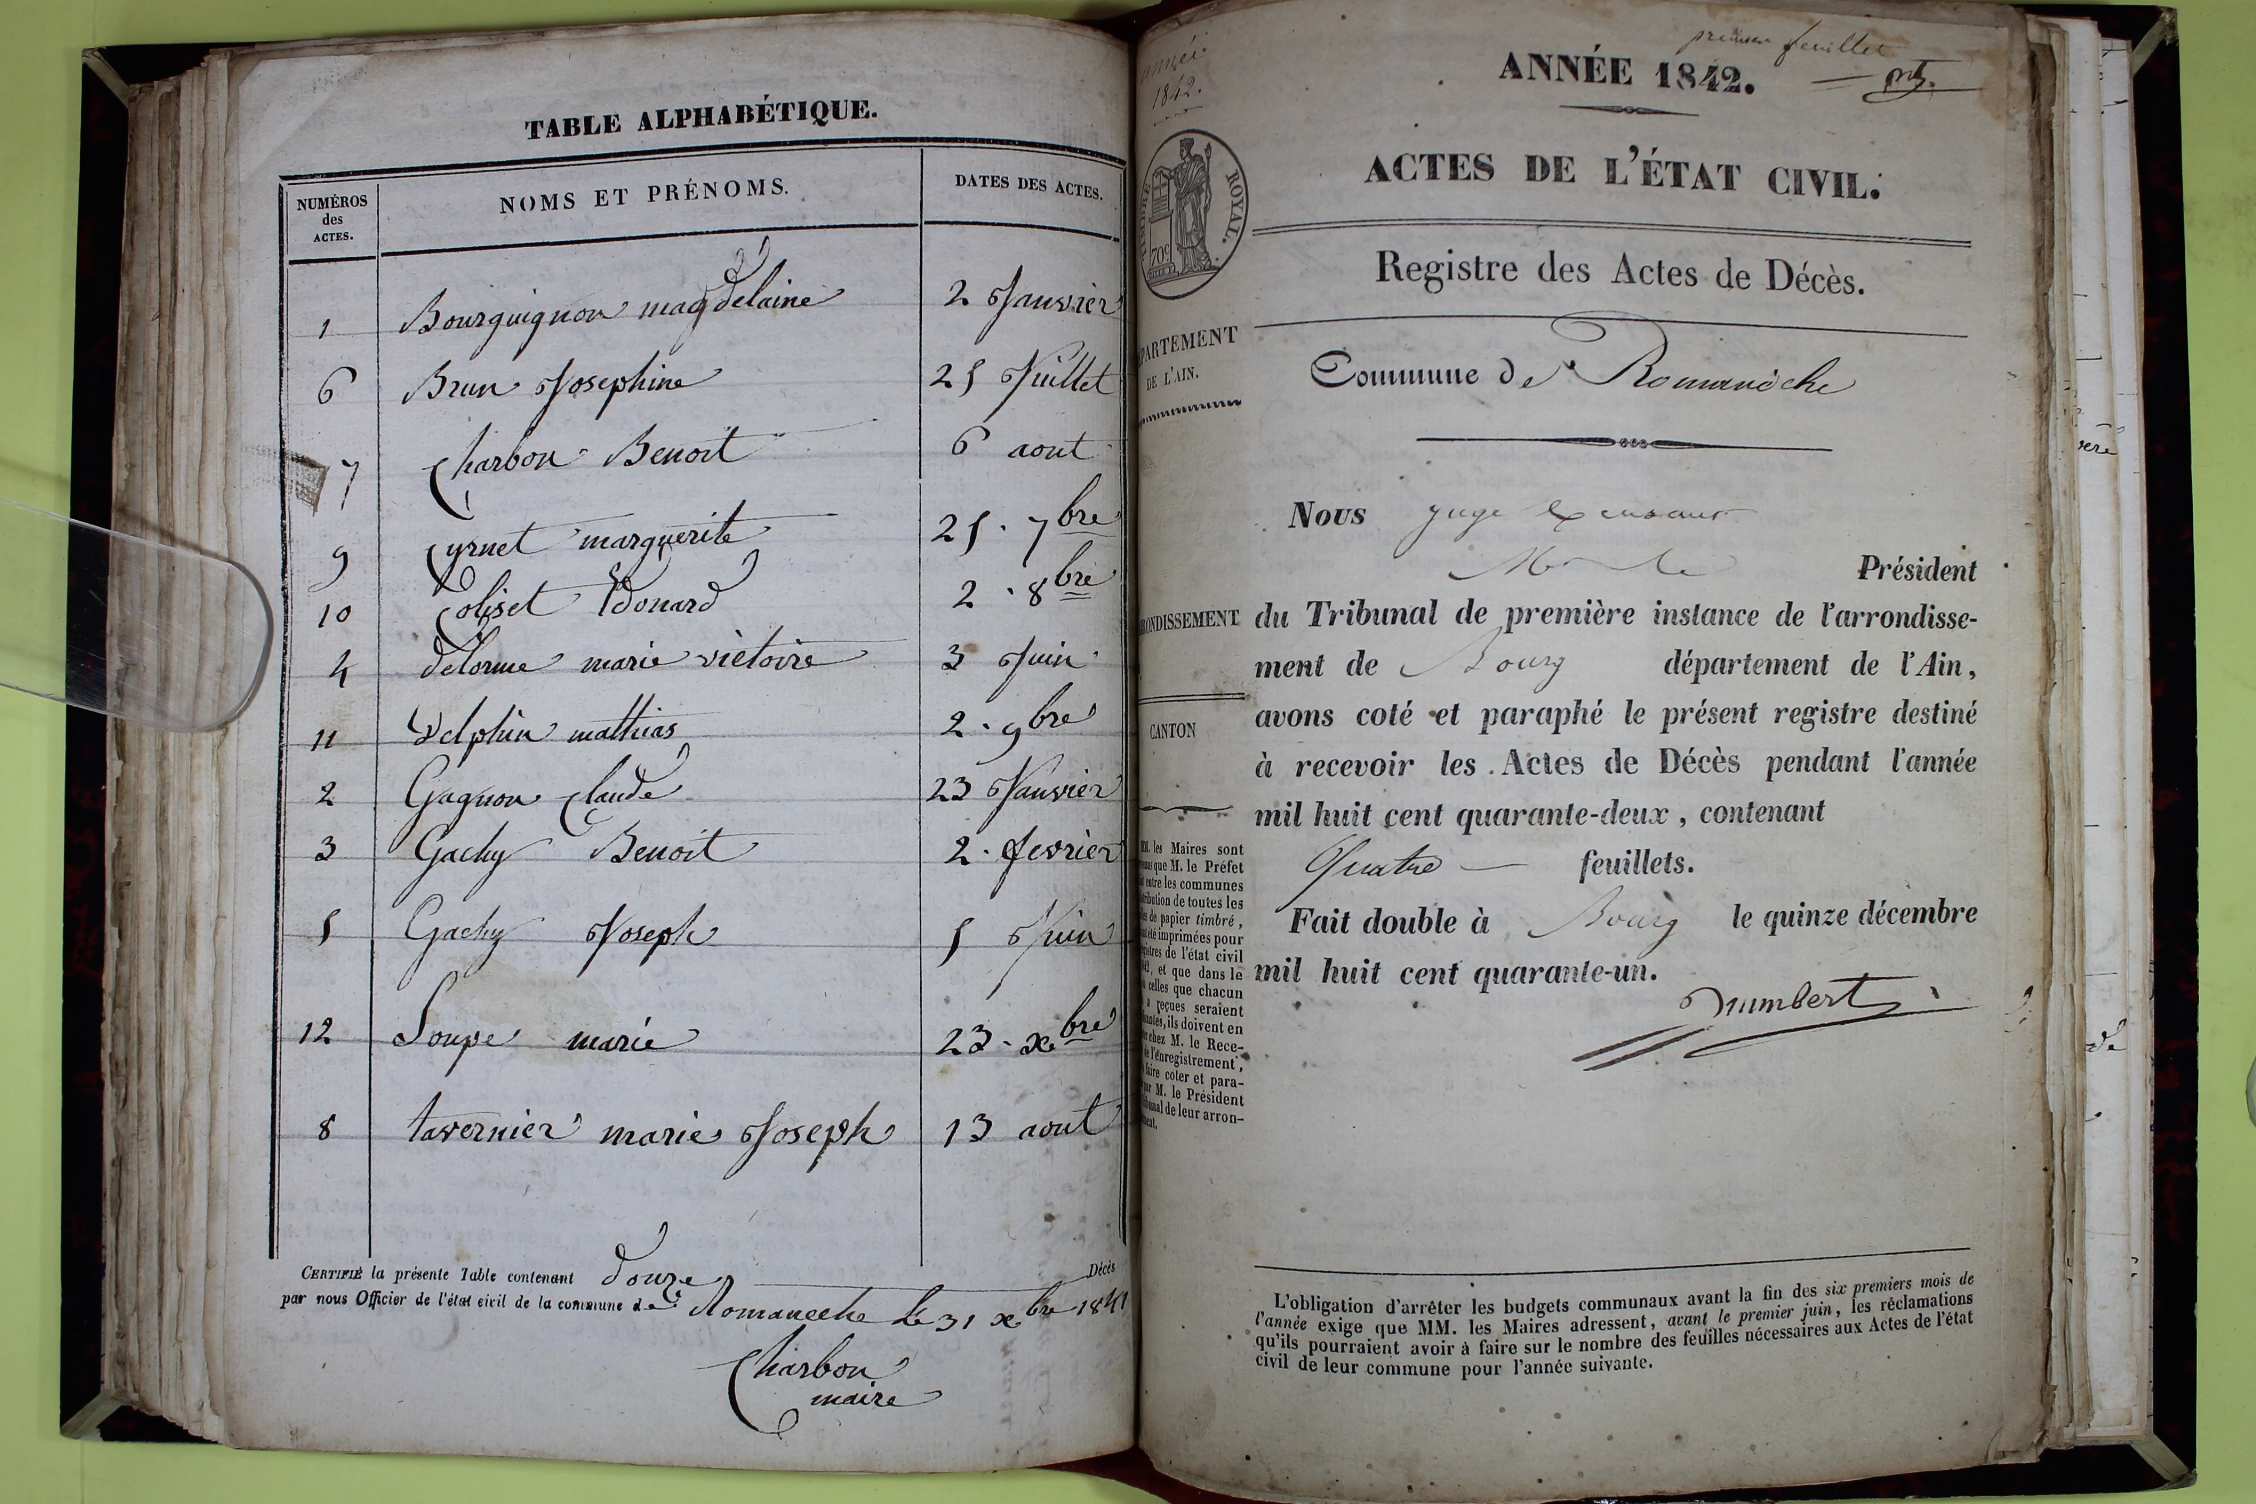 TABLE ALPHABÉTIQUE.
NUMÉROS des ACTES. NOMS ET PRÉNOMS. DATES DES ACTES.
1 Bourguignon magdelaine 2 Janvier
6 Brun Josephine 25 Juillet
7 Charbon Benoit 6 aout
9 Cyrnet marguerite 25 · 7bre
10 Coliset Edouard 2 · 8bre
4 delorme marie victoire 3 Juin
11 Delphin mathias 2 · 9bre
2 Gagnon Claude 23 Janvier
3 Gachy Benoit 2 · fevrier
5 Gachy Joseph 5 Juin
12 Soupe marie 23 · xbre
8 tavernier marie Joseph 13 aout
CERTIFIÉ la présente Table contenant douze Décès
par nous Officier de l'état civil de la commune de Romaneche le 31 xbre 1841
Charbon
maire
année
1842.
premier feuillet
ANNÉE 1842.
ACTES DE L'ÉTAT CIVIL.
ROYAL.
70c
Registre des Actes de Décès.
DE L'AIN.
Commune de Romanèche
Nous juge
Président
du Tribunal de première instance de l'arrondisse-
ment de Bourg département de l'Ain,
avons coté et paraphé le présent registre destiné
CANTON
à recevoir les Actes de Décès pendant l'année
mil huit cent quarante-deux, contenant
Quatre feuillets.
Fait double à Bourg le quinze décembre
mil huit cent quarante-un.
Humbert
les Maires sont
que M. le Préfet
entre les communes
de toutes les
de papier timbré,
été imprimées pour
de l'état civil
, et que dans le
celles que chacun
reçues seraient
, ils doivent en
chez M. le Rece-
l'enregistrement,
faire coter et para-
M. le Président
de leur arron-
L'obligation d'arrêter les budgets communaux avant la fin des six premiers mois de
l'année exige que MM. les Maires adressent, avant le premier juin, les réclamations
qu'ils pourraient avoir à faire sur le nombre des feuilles nécessaires aux Actes de l'état
civil de leur commune pour l'année suivante.